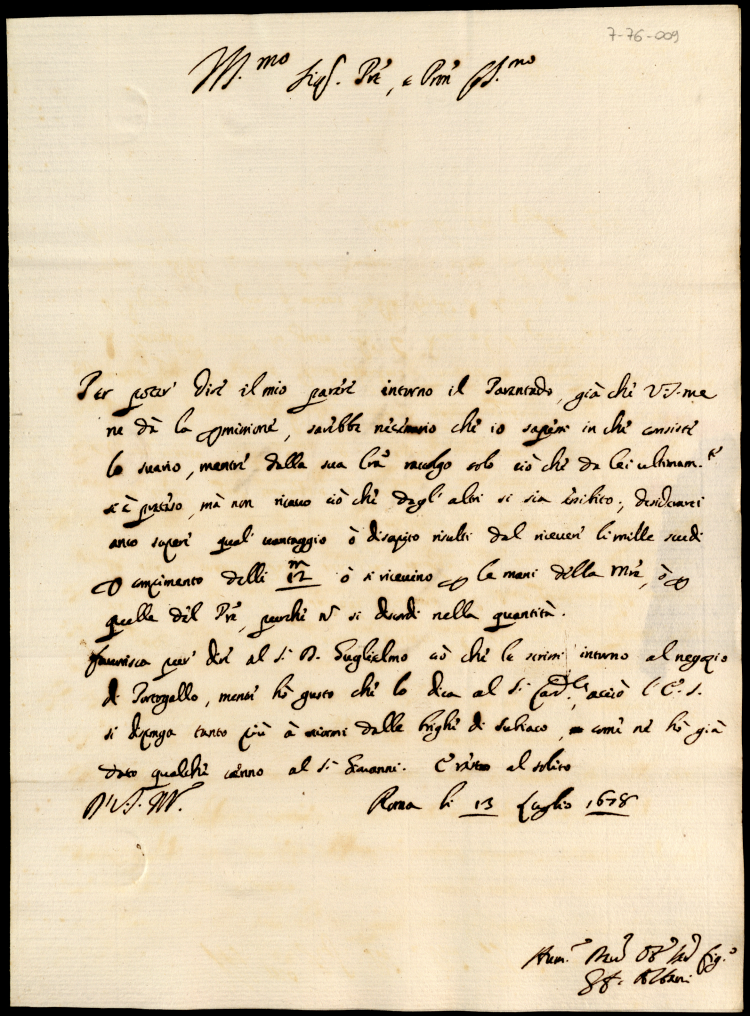 7-76-009
Ill.mo Sig.r Pre, e Pron Oss.mo
Per poter dire il mio parere intorno il Parentado, già che V.S. me
ne dà la permissione, sarebbe necessario che io sapessi in che consiste
lo svario, mentre dalla sua lra raccolgo solo ciò che da lei ultimam.te
si è preteso, mà non ricavo ciò che dagl'altri si sia esibito; desidererei
anco saper qual vantaggio ò discapito risulti dal ricevere li mille scudi
per compimento delli 12 m ò si ricevino per le mani della Mre, ò per
quelle del Pre, purche n si discordi nella quantità.
Favorisca pur dire al S.r D. Guglielmo ciò che le scrissi intorno al negozio
di Portogallo, mentre hò gusto che lo dica al S.r Card.le, acciò l'E.S.
si disponga tanto più à sciormi dalle brighe di Subiaco, come ne hò già
dato qualche cenno al S.r Giovanni. E resto al solito
D. V.S. Ill.
Roma li 13 Luglio 1678
Hum.o Dev.o Obb.o Ser Fig.o
Albani